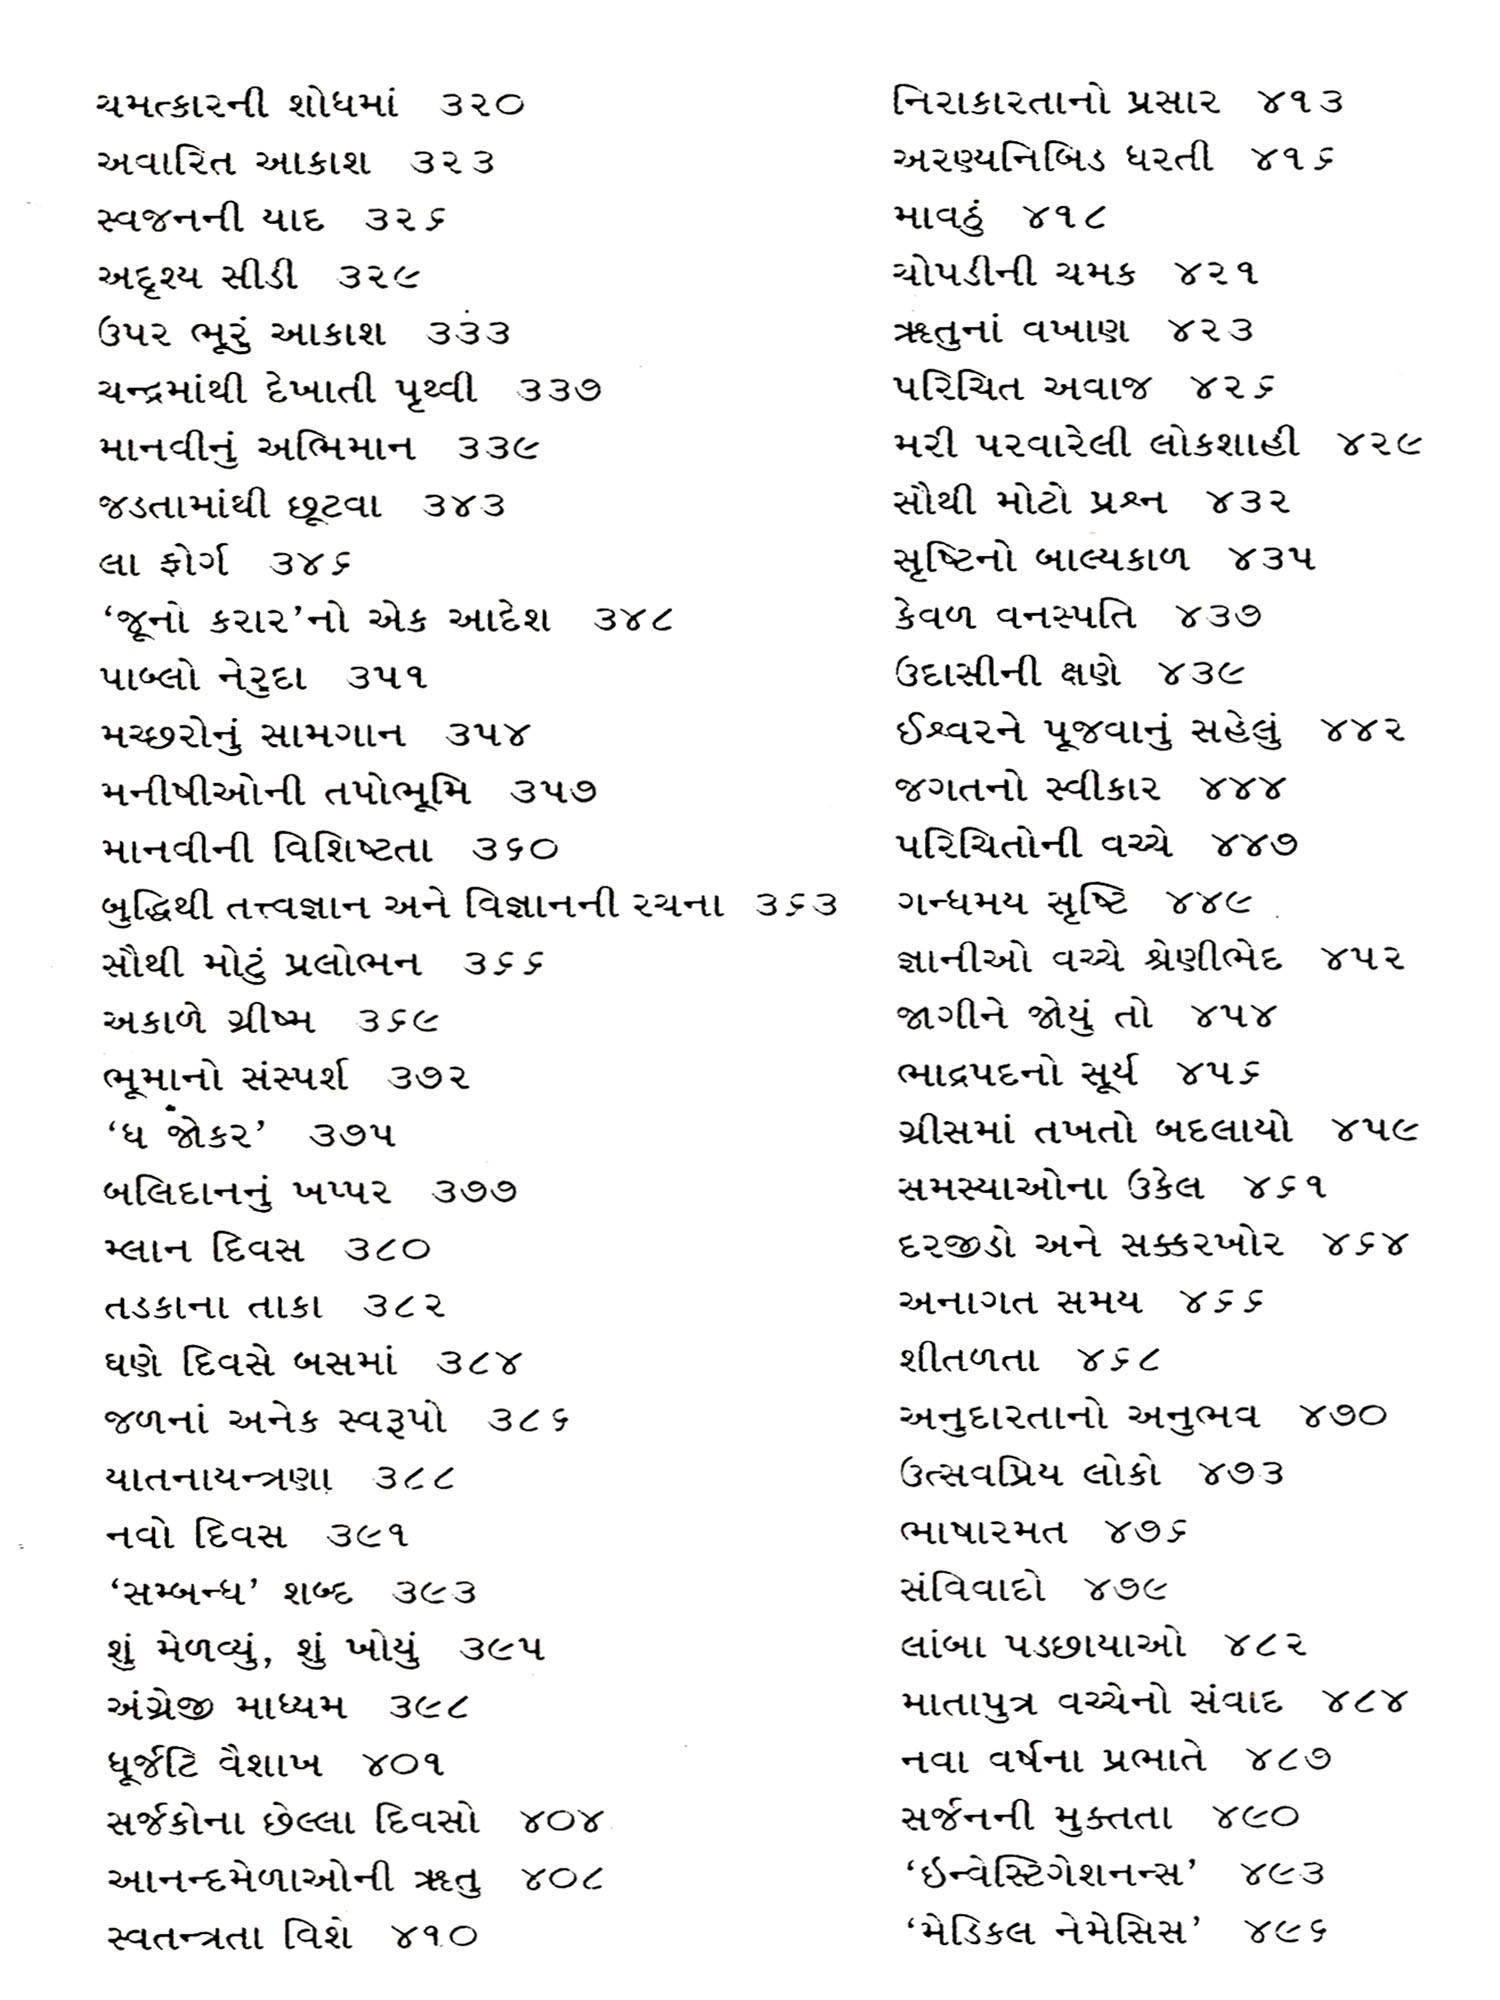 ચમત્કારની શોધમાં ૩૨૦
અવારિત આકાશ ૩૨૩
સ્વજનની યાદ ૩૨૬
અદૃશ્ય સીડી ૩૨૯
ઉપર ભૂરું આકાશ ૩૩૩
ચન્દ્રમાંથી દેખાતી પૃથ્વી ૩૩૭
માનવીનું અભિમાન ૩૩૯
જડતામાંથી છૂટવા ૩૪૩
લા ફોર્ગ ૩૪૬
‘જૂનો કરાર’નો એક આદેશ ૩૪૮
પાબ્લો નેરુદા ૩૫૧
મચ્છરોનું સામગાન ૩૫૪
મનીષીઓની તપોભૂમિ ૩૫૭
માનવીની વિશિષ્ટતા ૩૬૦
બુદ્ધિથી તત્ત્વજ્ઞાન અને વિજ્ઞાનની રચના ૩૬૩
સૌથી મોટું પ્રલોભન ૩૬૬
અકાળે ગ્રીષ્મ ૩૬૯
ભૂમાનો સંસ્પર્શ ૩૭૨
‘ધ જોકર’ ૩૭૫
બલિદાનનું ખપ્પર ૩૭૭
મ્લાન દિવસ ૩૮૦
તડકાના તાકા ૩૮૨
ઘણે દિવસે બસમાં ૩૮૪
જળનાં અનેક સ્વરૂપો ૩૮૬
યાતનાયન્ત્રણા ૩૮૮
નવો દિવસ ૩૯૧
‘સમ્બન્ધ’ શબ્દ ૩૯૩
શું મેળવ્યું, શું ખોયું ૩૯૫
અંગ્રેજી માધ્યમ ૩૯૮
ધૂર્જટિ વૈશાખ ૪૦૧
સર્જકોના છેલ્લા દિવસો ૪૦૪
આનન્દમેળાઓની ઋતુ ૪૦૮
સ્વતન્ત્રતા વિશે ૪૧૦
નિરાકારતાનો પ્રસાર ૪૧૩
અરણ્યનિબિડ ધરતી ૪૧૬
માવઠું ૪૧૮
ચોપડીની ચમક ૪૨૧
ઋતુનાં વખાણ ૪૨૩
પરિચિત અવાજ ૪૨૬
મરી પરવારેલી લોકશાહી ૪૨૯
સૌથી મોટો પ્રશ્ન ૪૩૨
સૃષ્ટિનો બાલ્યકાળ ૪૩૫
કેવળ વનસ્પતિ ૪૩૭
ઉદાસીની ક્ષણે ૪૩૯
ઈશ્વરને પૂજવાનું સહેલું ૪૪૨
જગતનો સ્વીકાર ૪૪૪
પરિચિતોની વચ્ચે ૪૪૭
ગન્ધમય સૃષ્ટિ ૪૪૯
જ્ઞાનીઓ વચ્ચે શ્રેણીભેદ ૪૫૨
જાગીને જોયું તો ૪૫૪
ભાદ્રપદનો સૂર્ય ૪૫૬
ગ્રીસમાં તખતો બદલાયો ૪૫૯
સમસ્યાઓના ઉકેલ ૪૬૧
દરજીડો અને સક્કરખોર ૪૬૪
અનાગત સમય ૪૬૬
શીતળતા ૪૬૮
અનુદારતાનો અનુભવ ૪૭૦
ઉત્સવપ્રિય લોકો ૪૭૩
ભાષારમત ૪૭૬
સંવિવાદો ૪૭૯
લાંબા પડછાયાઓ ૪૮૨
માતાપુત્ર વચ્ચેનો સંવાદ ૪૮૪
નવા વર્ષના પ્રભાતે ૪૮૭
સર્જનની મુક્તતા ૪૯૦
‘ઇન્વેસ્ટિગેશનન્સ’ ૪૯૩
‘મેડિકલ નેમેસિસ’ ૪૯૬